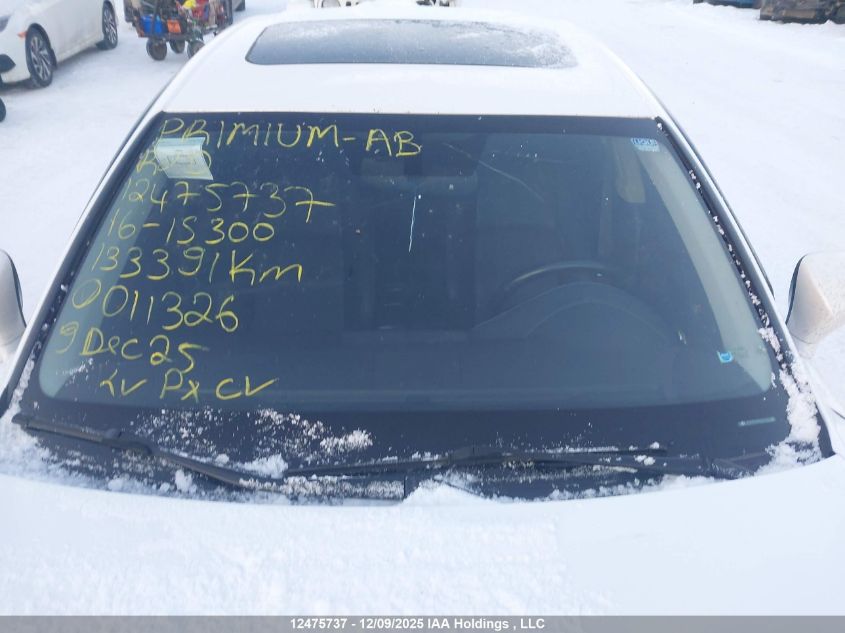 PRIMIUM-AB
12475737
16-IS300
133391Km
0011326
9Dec25
LV Px CV
12475737 - 12/09/2025 IAA Holdings , LLC